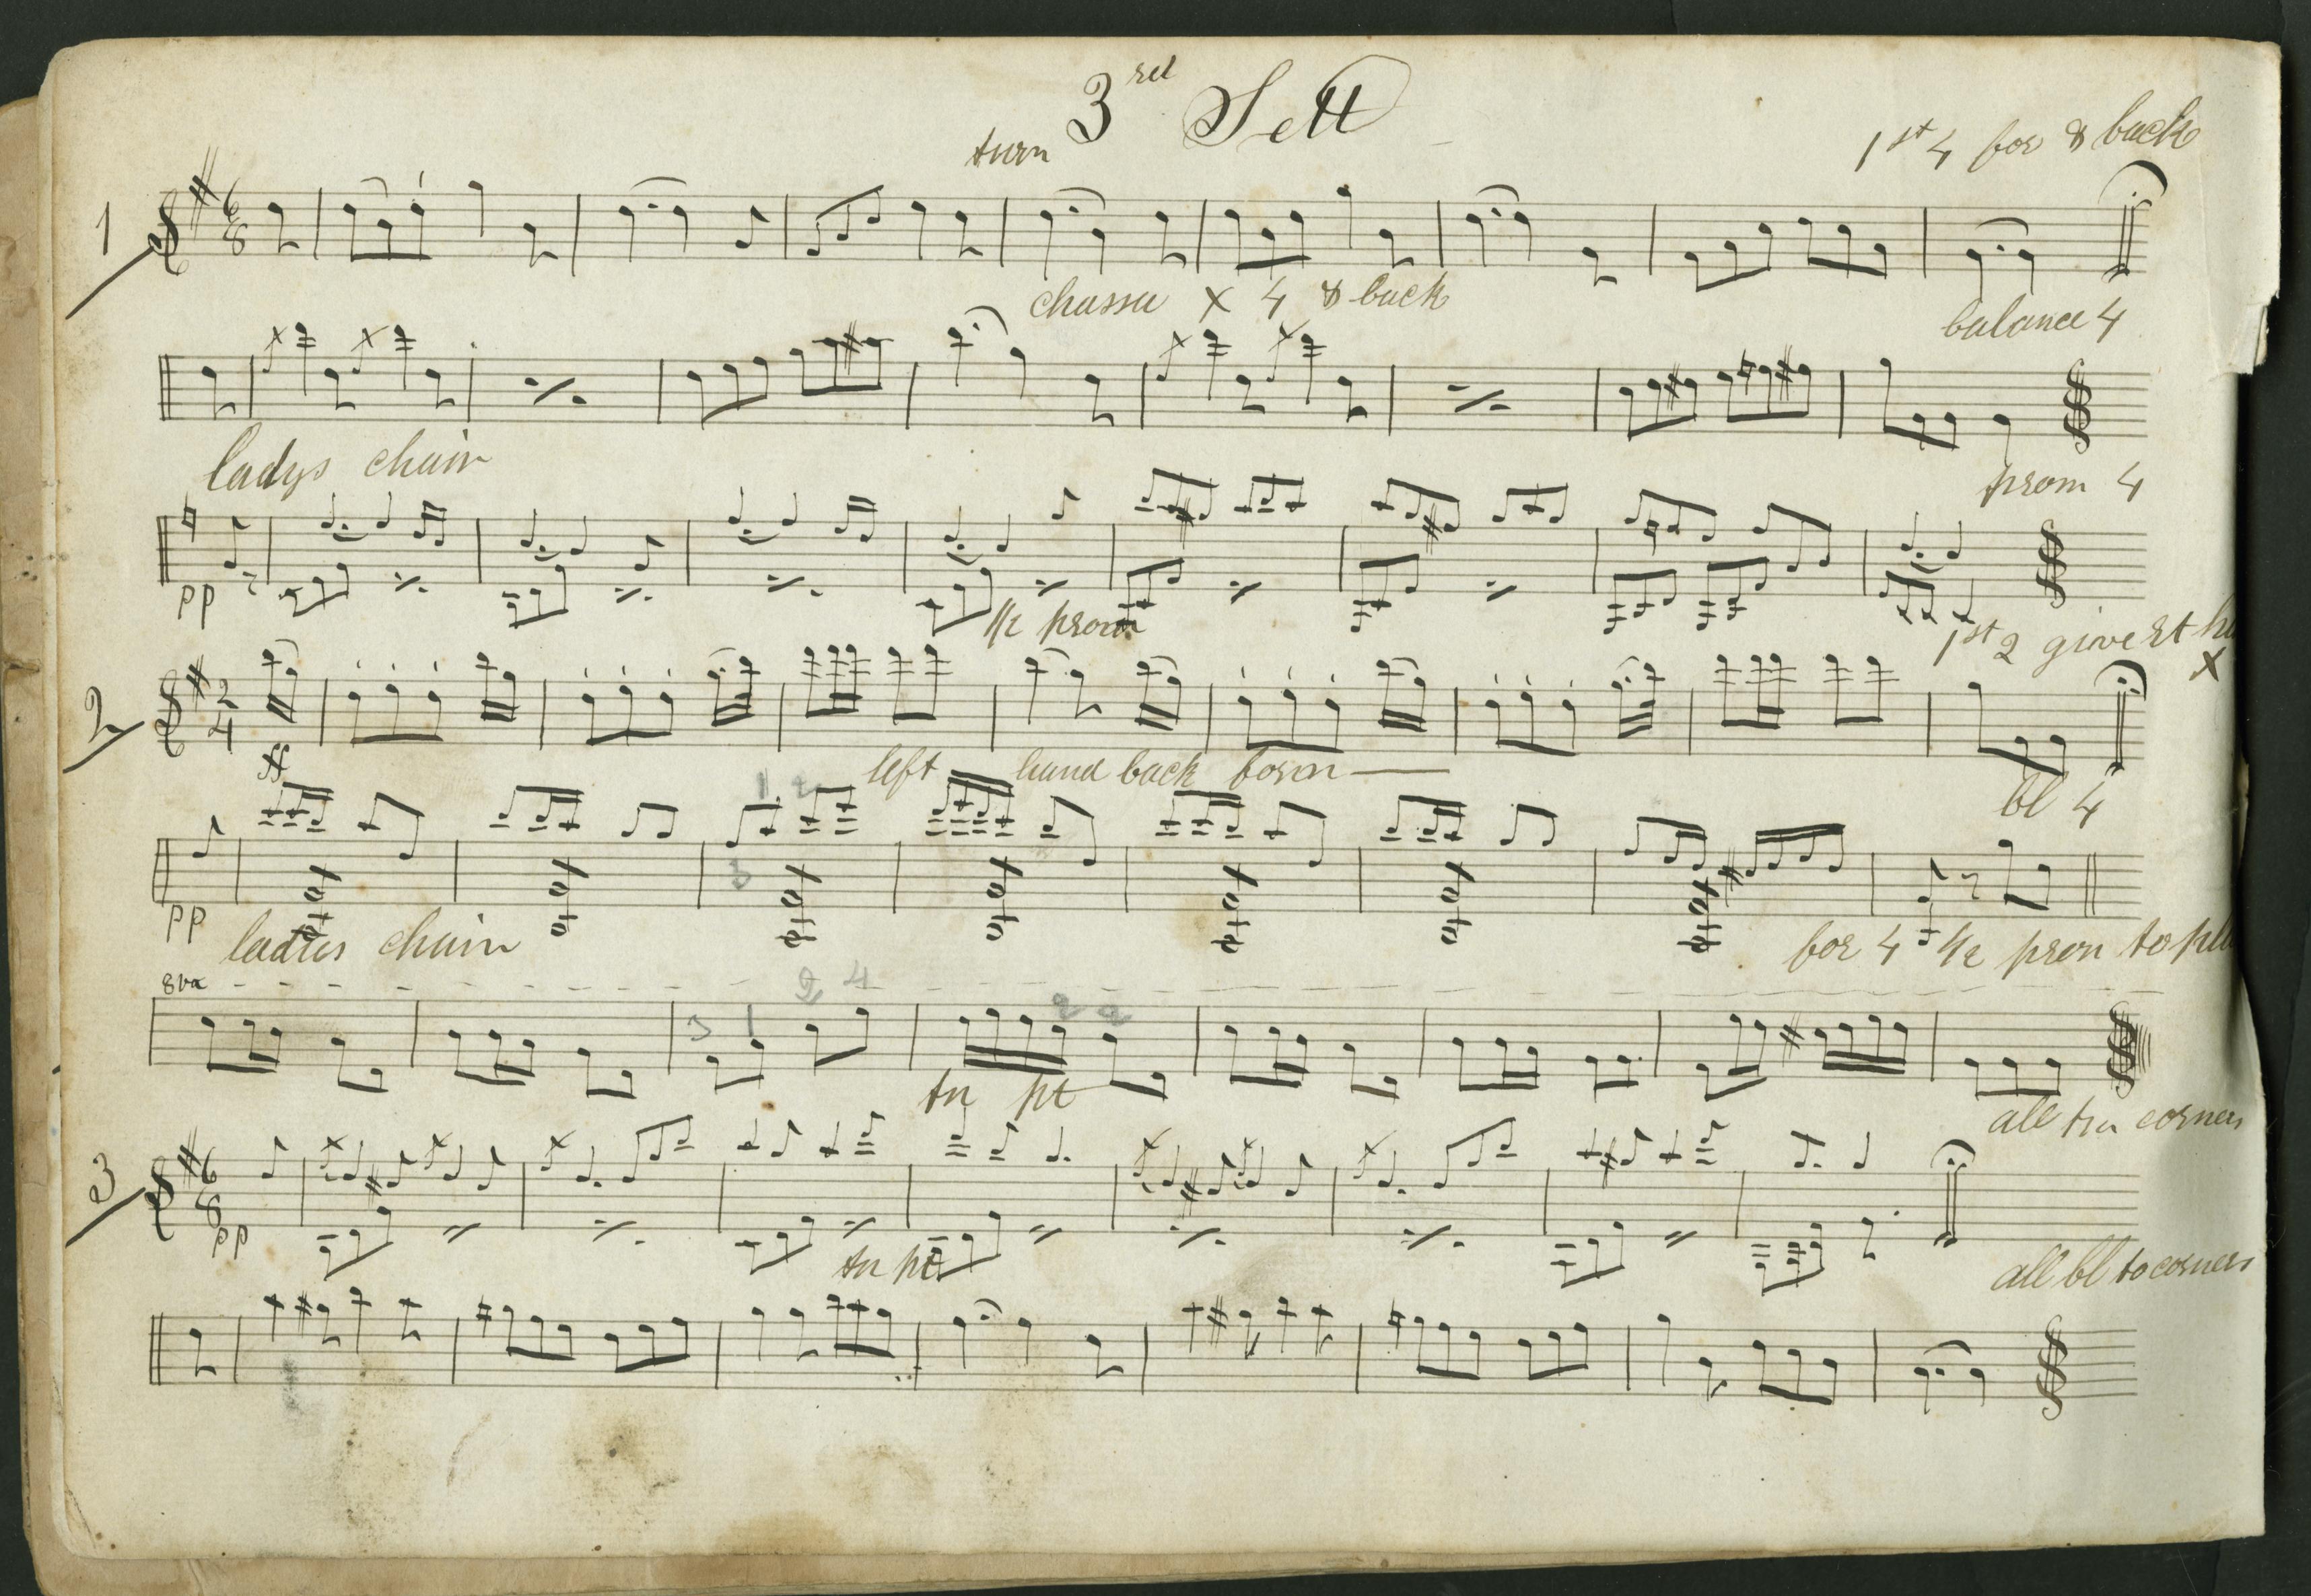 3rd Sett
turn
1st 4 for & back
1
6
8
chassa x 4 & back
balance 4
ladys chain
prom 4
pp
1/2 prom
1st 2 give rt
x
2
2
4
ff
left hand back form
bl 4
1 2
3
pp
ladies chain
for 4 1/2 prom to
8va
2 4
3 1 2 2
tn pt
all tn corners
3
6
8
pp
tn pt
all bl to corners